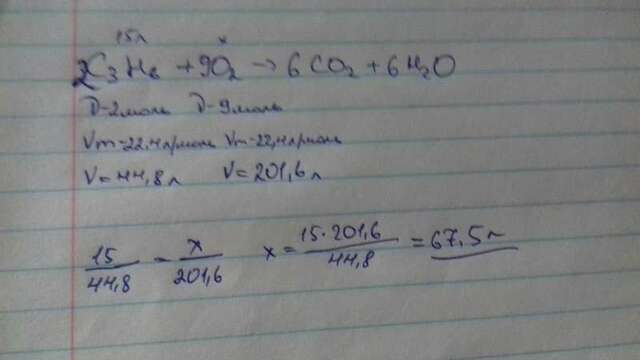 15л x
2C₃H₆ + 9O₂ → 6CO₂ + 6H₂O
D-2моль D-9моль
Vm=22,4л/моль Vm=22,4л/моль
V=44,8л V=201,6л
15/44,8 = x/201,6 x = 15·201,6/44,8 = 67,5л